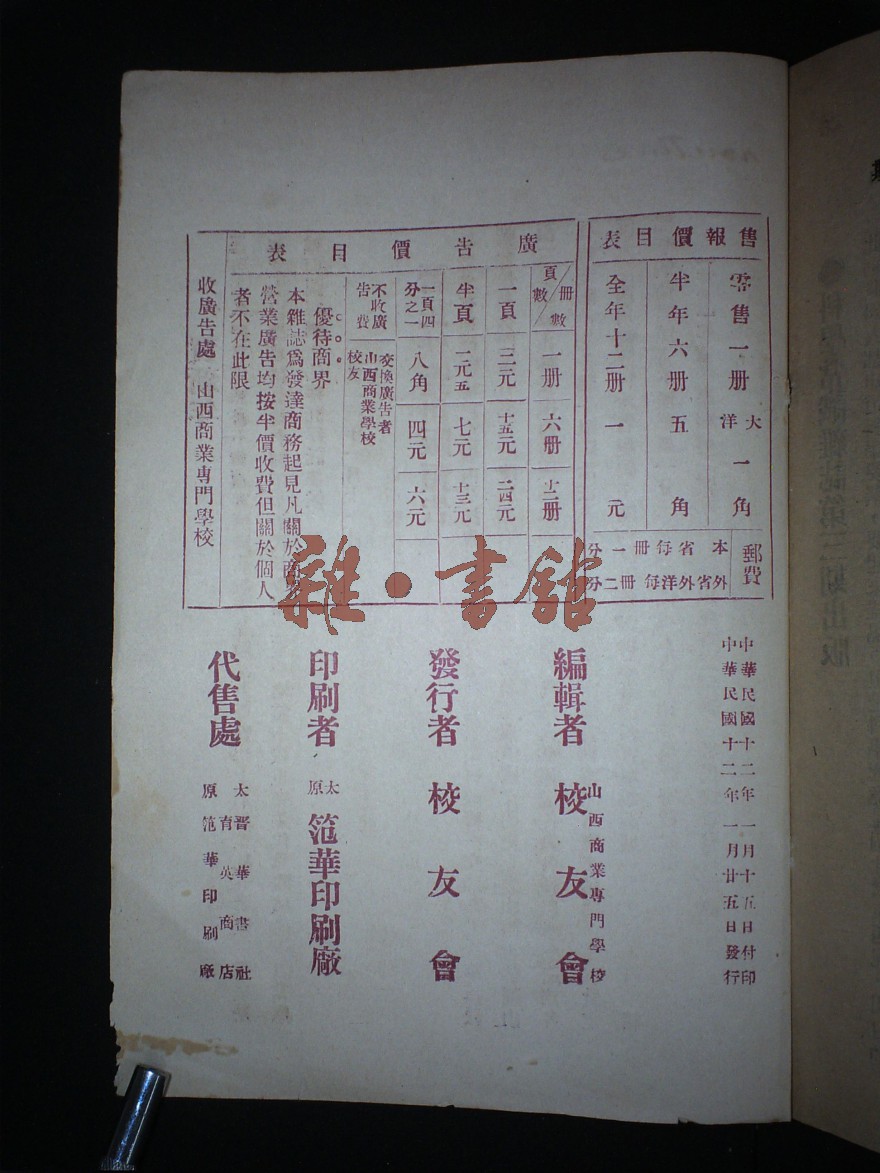 售報價目表
零售一册大洋一角
半年六册五角
全年十二册一元
郵費
本省每冊一分
外省外洋每冊二分
廣告價目表
頁數／冊數 一册 六册 十二册
一頁 三元 十五元 二四元
半頁 一元五 七元 十三元
一頁四分之一 八角 四元 六元
不收廣告費
交換廣告者
山西商業學校
校友
優待商界
本雜誌爲發達商務起見凡關於商界
營業廣告均按半價收費但關於個人
者不在此限
收廣告處 山西商業專門學校
中華民國十二年一月十五日付印
中華民國十二年一月廿五日發行
編輯者 山西商業專門學校校友會
發行者 校友會
印刷者 太原范華印刷廠
代售處 太原
晋華書社
育英商店
范華印刷廠
雜·書館